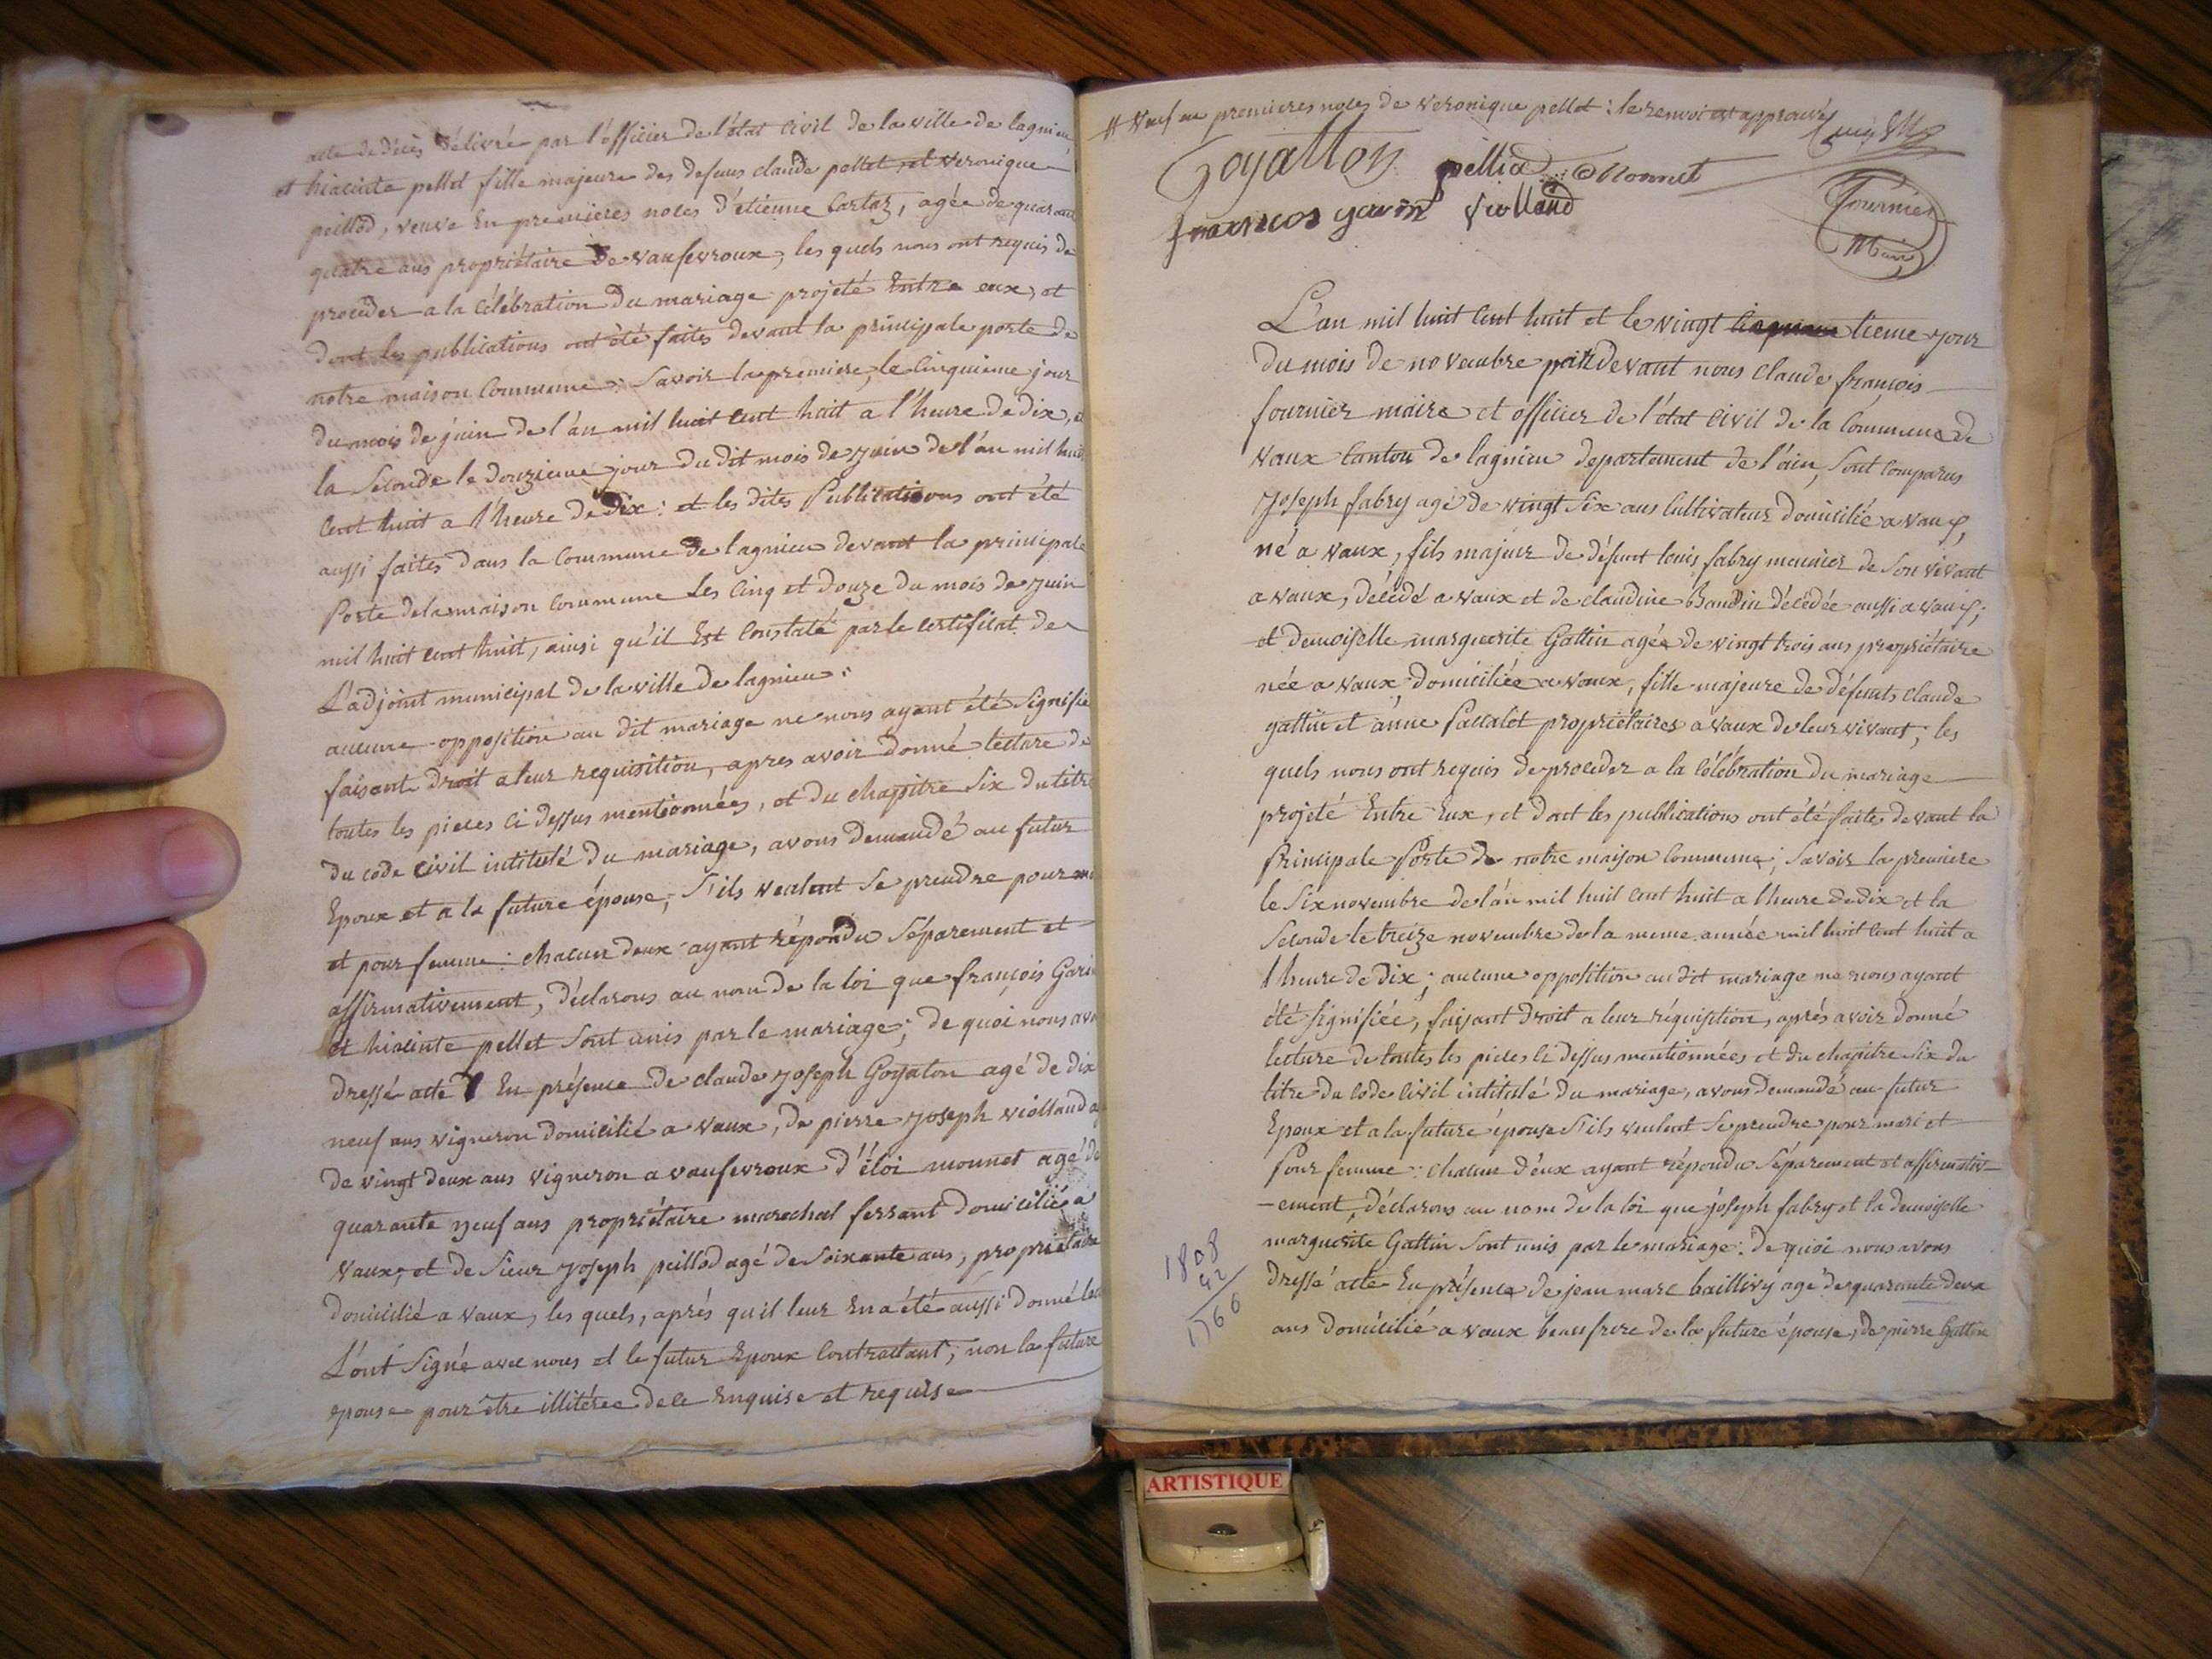 acte de décès délivré par l'officier de l'état civil de la ville de lagnieu
et hiacinte pellet fille majeure des defuns claude pellet, et veronique
peillod, veuve En premieres noces d'etienne Cartaz, agée de quarante
quatre ans propriétaire de vaufevroux, les quels nous ont requis de
proceder a la Célébration du mariage projeté Entre eux, et
dont les publications ont été faites devant la principale porte de
notre maison Commune; Savoir la premiere, le Cinquieme jour
du mois de juin de l'an mil huit Cent huit a l'heure de dix, et
la Seconde le douzieme jour du dit mois de juin de l'an mil huit
Cent huit a l'heure de Dix: et les dites Publications ont été
aussi faites dans la Commune de lagnieu devant la principale
Porte de la maison Commune Les Cinq et douze du mois de juin
mil huit Cent huit, ainsi qu'il Est Constaté par le Certificat de
L'adjoint municipal de la ville de lagnieu:
aucune opposition au dit mariage ne nous ayant été Signifie
faisant droit a leur requisition, apres avoir donné lecture de
toutes les pieces Ci dessus mentionnées, et du chapitre Six du titre
du code Civil intitulé du mariage, avons demandé au futur
Epoux et a la future épouse, S'ils veulent Se prendre pour
et pour femme: chacun deux ayant répondu Séparement et
affirmativement, déclarons au nom de la loi que françois Garin
et hiacinte pellet Sont unis par le mariage; de quoi nous
dressé acte En présence de claude joseph Goyaton agé de dix
neuf ans vigneron domicilié a vaux, de pierre joseph viollaud
de vingt deux ans vigneron a vaufevroux d'éloi monnet agé de
quarante neuf ans propriétaire marechal ferrant domicilié a
Vaux, et de Sieur joseph peillod agé de Soixante ans, propriétaire
domicilié a vaux, les quels, après qu'il leur En a été aussi donné
L'ont Signé avec nous et le futur Epoux Contractant, non la future
epouse pour être illitérée de ce Enquise et requise
# veuf en premieres noces de veronique pellet: le renvoi est approuvé
Goyatton pellied Monnet
francois garin violland
Fournier
Maire
L'an mil huit Cent huit et le vingt tieme jour
du mois de novembre par devant nous claude françois
fournier maire et officier de l'état Civil de la Commune de
Vaux Canton de lagnieu departement de l'ain, Sont Comparus
Joseph fabry agé de vingt Six ans Cultivateur domicilié a vaux,
né a vaux, fils majeur de défunt louis fabry meunier de Son vivant
a vaux, décédé a vaux et de claudine Baudin décédée aussi a vaux;
et demoiselle marguerite Gattin agée de vingt trois ans propriétaire
née a vaux, domiciliée a vaux, fille majeure de défunts claude
gattin et anne Paccalet propriétaires a vaux de leur vivant; les
quels nous ont requis de proceder a la Célébration du mariage
projeté Entre Eux, et dont les publications ont été faites devant la
Principale Porte de notre maison Commune; Savoir la premiere
le Six novembre de l'an mil huit Cent huit a l'heure de dix et la
Seconde le treize novembre de la meme année mil huit Cent huit a
l'heure de dix; aucune opposition au dit mariage ne nous ayant
été Signifiée, faisant droit a leur réquisition, après avoir donné
lecture de toutes les pieces Ci dessus mentionnées et du chapitre Six du
titre du Code Civil intitulé du mariage, avons demandé au futur
Epoux et a la future épouse S'ils veulent Se prendre pour mari et
Pour femme: chacun d'eux ayant répondu Séparement et affirmativ-
-ement, déclarons au nom de la loi que joseph fabry et la demoiselle
marguerite Gattin Sont unis par le mariage: de quoi nous avons
dressé acte En présence de jean marc baillivy agé de quarante deux
ans domicilié a vaux beaufrere de la future épouse, de pierre Gattin
1808
42
1766
ARTISTIQUE